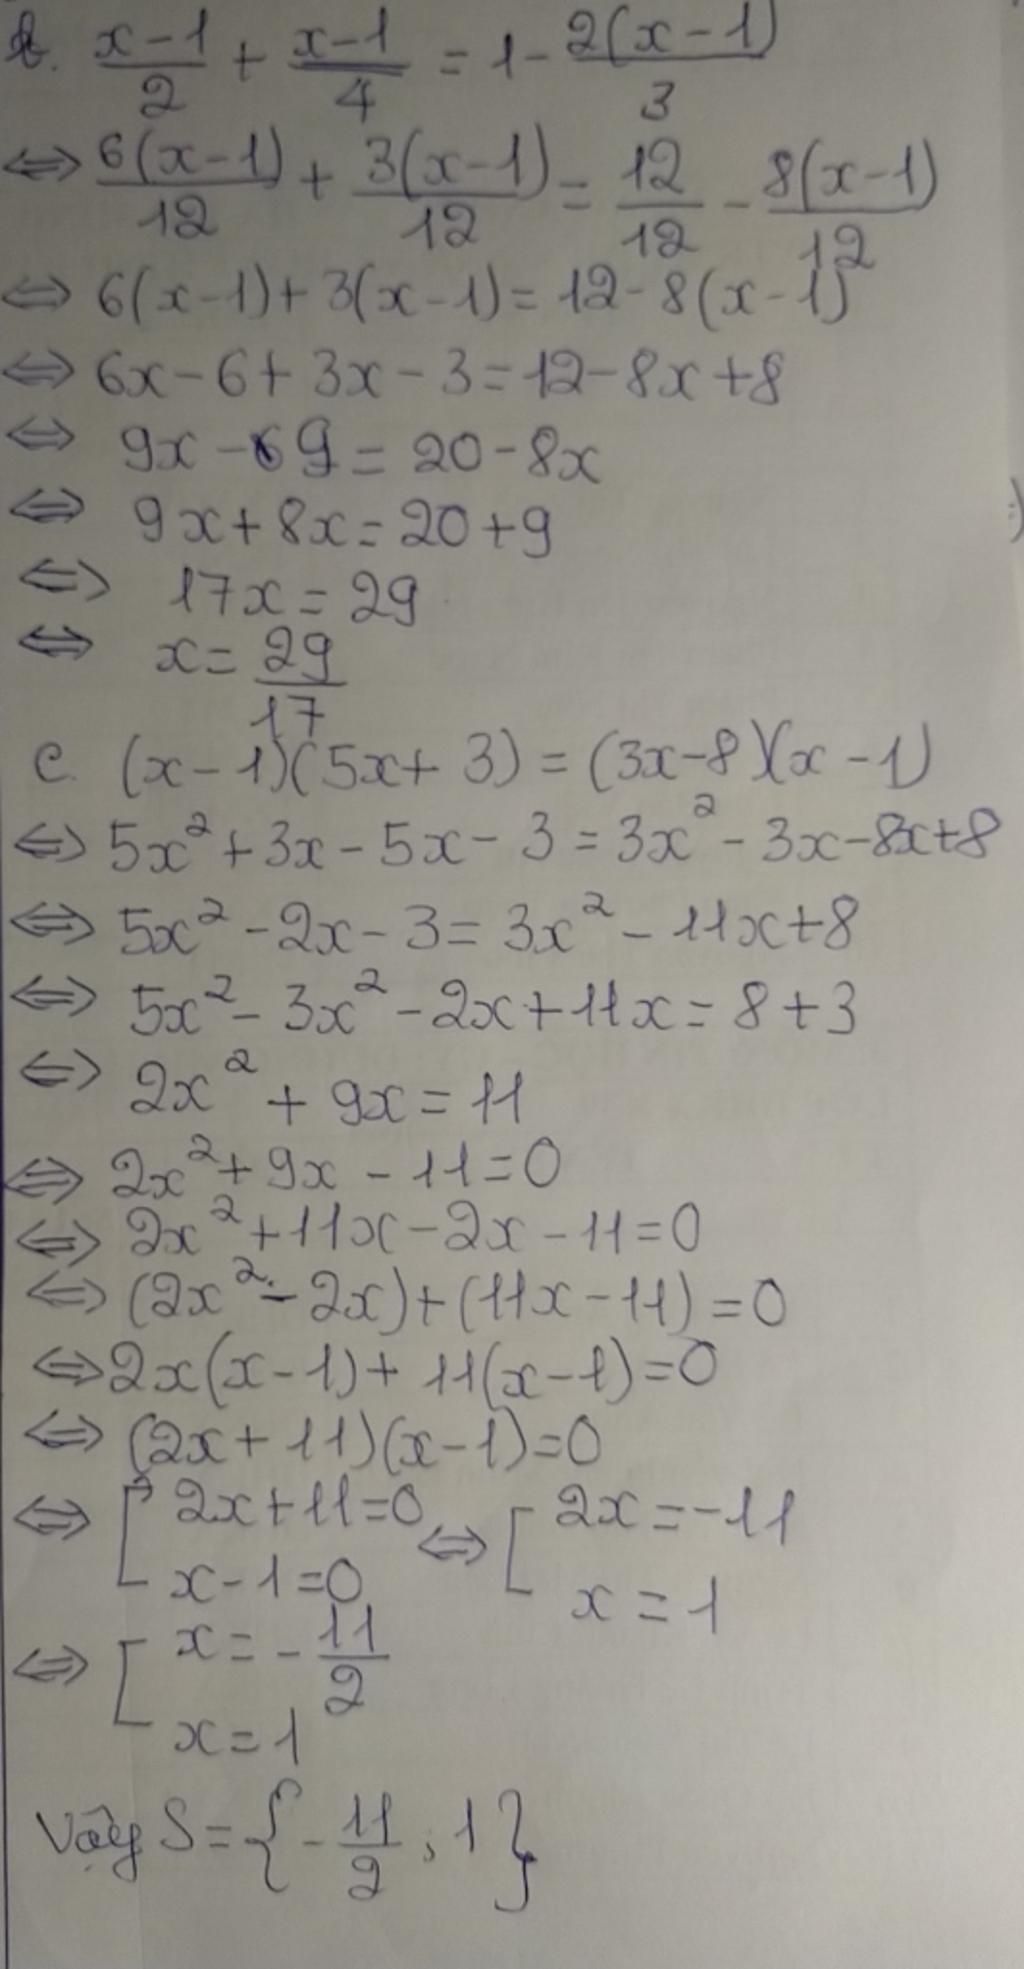 b. (x-1)/2 + (x-1)/4 = 1 - 2(x-1)/3
⇔ 6(x-1)/12 + 3(x-1)/12 = 12/12 - 8(x-1)/12
⇔ 6(x-1) + 3(x-1) = 12 - 8(x-1)
⇔ 6x - 6 + 3x - 3 = 12 - 8x + 8
⇔ 9x - 9 = 20 - 8x
⇔ 9x + 8x = 20 + 9
⇔ 17x = 29
⇔ x = 29/17
c. (x-1)(5x+3) = (3x-8)(x-1)
⇔ 5x² + 3x - 5x - 3 = 3x² - 3x - 8x + 8
⇔ 5x² - 2x - 3 = 3x² - 11x + 8
⇔ 5x² - 3x² - 2x + 11x = 8 + 3
⇔ 2x² + 9x = 11
⇔ 2x² + 9x - 11 = 0
⇔ 2x² + 11x - 2x - 11 = 0
⇔ (2x² - 2x) + (11x - 11) = 0
⇔ 2x(x-1) + 11(x-1) = 0
⇔ (2x+11)(x-1) = 0
⇔ [ 2x + 11 = 0 ⇔ [ 2x = -11
x - 1 = 0 x = 1
⇔ [ x = -11/2
x = 1
Vậy S = { -11/2 ; 1 }